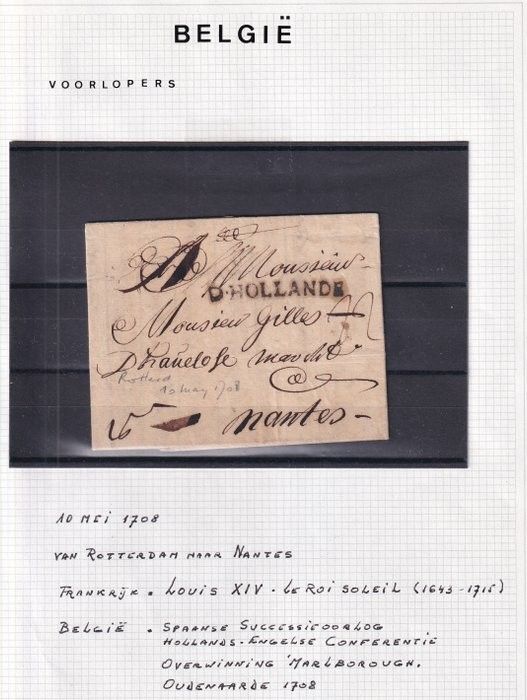 BELGIË
VOORLOPERS
A Monsieur
D·HOLLANDE
Monsieur Gilles
Dhauelose marcht
Rotterd
10 may 1708
Nantes
10 MEI 1708
VAN ROTTERDAM NAAR NANTES
FRANKRIJK . LOUIS XIV . LE ROI SOLEIL (1643 - 1715)
BELGIË . SPAANSE SUCCESSIEOORLOG
HOLLANDS - ENGELSE CONFERENTIE
OVERWINNING 'MARLBOROUGH.
OUDENAARDE 1708